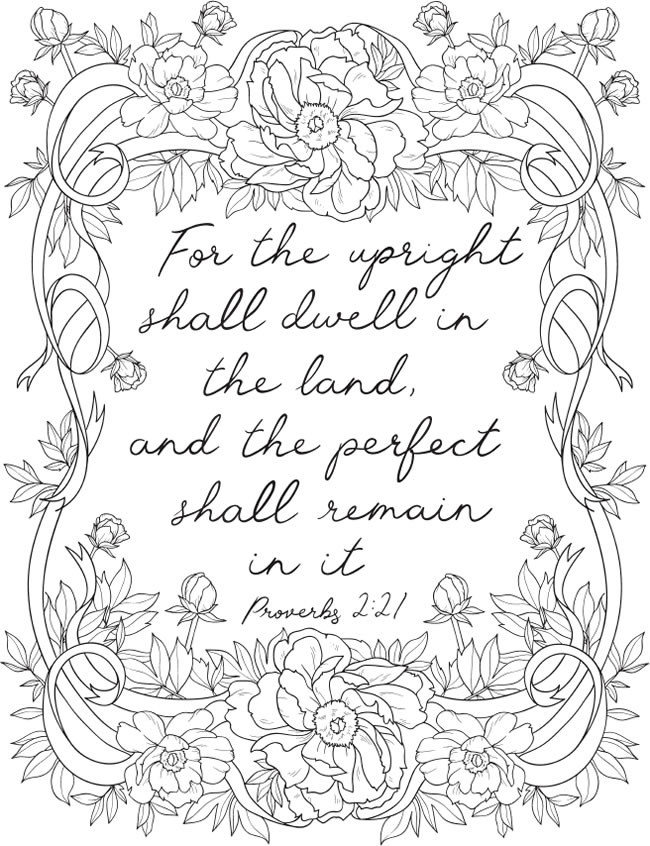 For the upright
shall dwell in
the land,
and the perfect
shall remain
in it
Proverbs 2:21